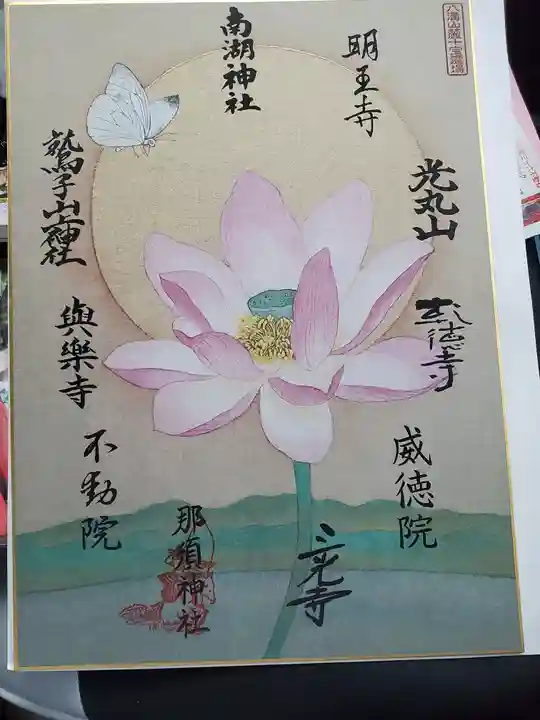 八溝山麓十宝霊場
南湖神社
明王寺
鷲子山上神社
光丸山
與樂寺
不動院
威徳院
那須神社
三光寺